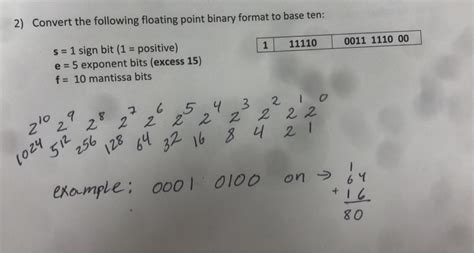 2) Convert the following floating point binary format to base ten:
s = 1 sign bit (1 = positive)
e = 5 exponent bits (excess 15)
f = 10 mantissa bits
1 11110 0011 1110 00
2¹⁰ 2⁹ 2⁸ 2⁷ 2⁶ 2⁵ 2⁴ 2³ 2² 2¹ 2⁰
1024 512 256 128 64 32 16 8 4 2 1
example: 0001 0100 on →
1
64
+ 16
80